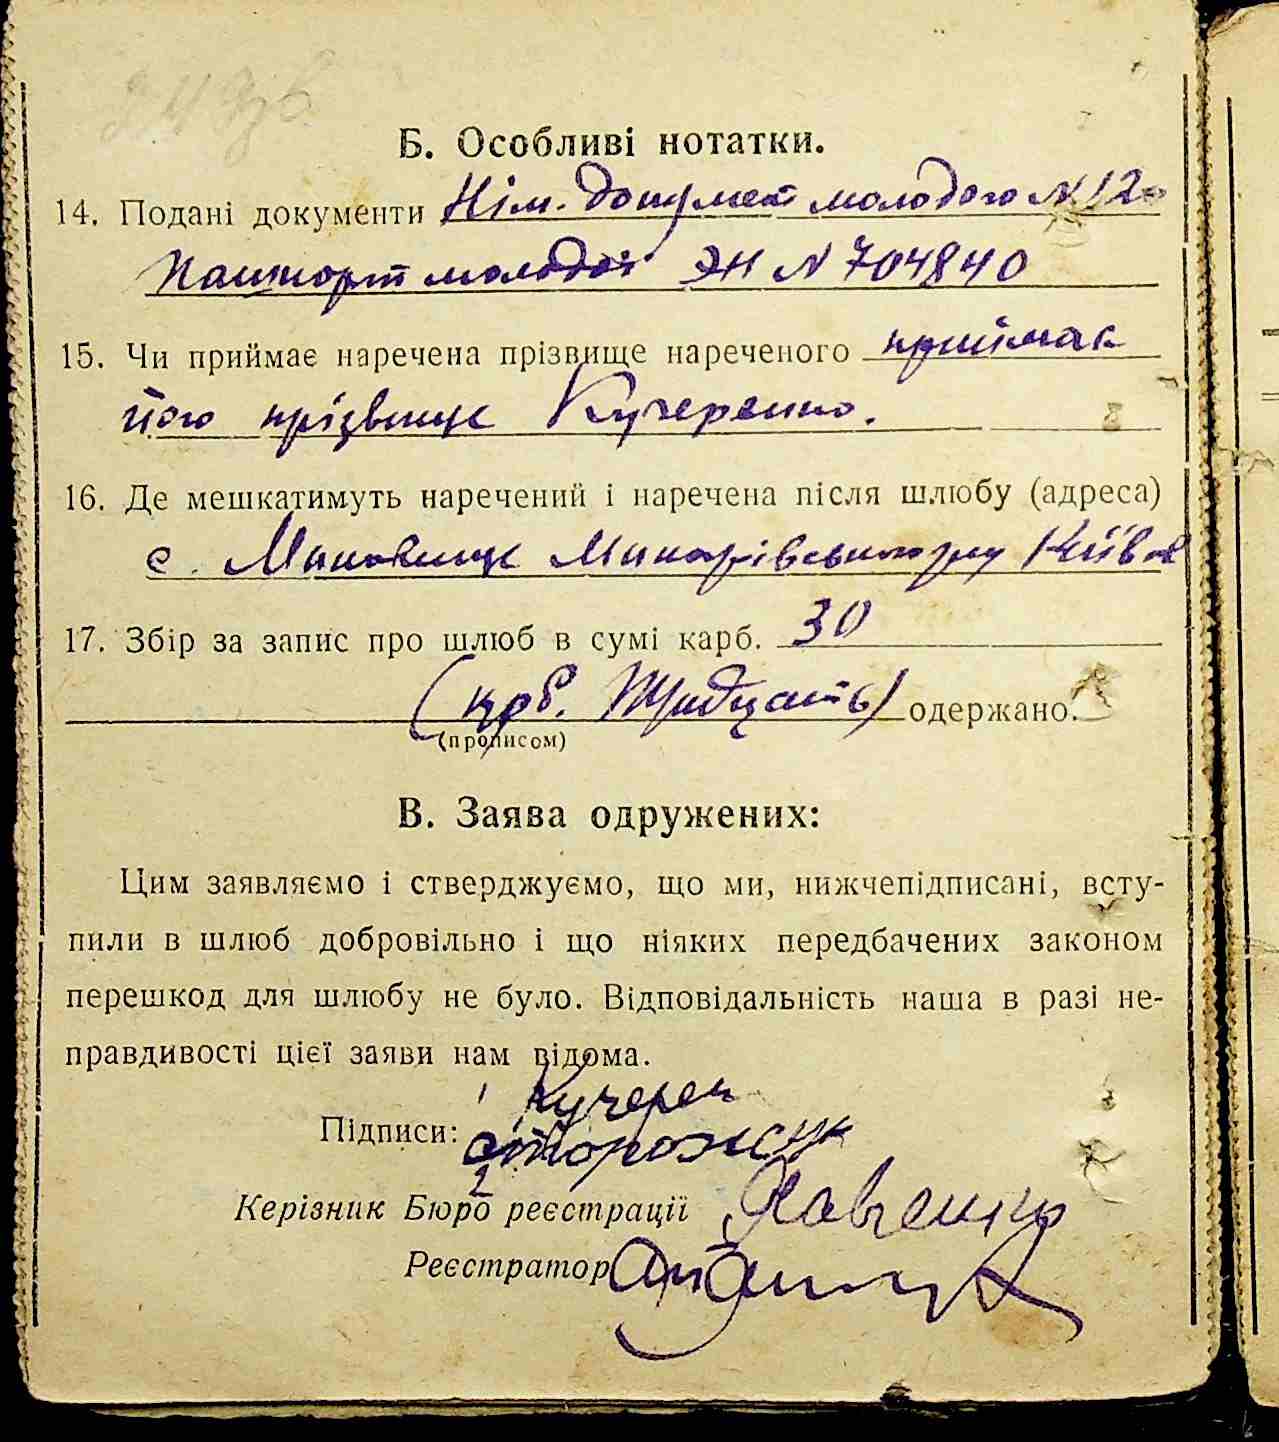 Б. Особливі нотатки.
14. Подані документи Нім. документ молодого N 12
Паспорт молодої ЭН N 704840
15. Чи приймає наречена прізвище нареченого приймає
його прізвище Кучеренко.
16. Де мешкатимуть наречений і наречена після шлюбу (адреса)
с. Маковище Макарівського р-ну Київ
17. Збір за запис про шлюб в сумі карб. 30
(крб. Тридцать) одержано.
(прописом)
В. Заява одружених:
Цим заявляємо і стверджуємо, що ми, нижчепідписані, всту-
пили в шлюб добровільно і що ніяких передбачених законом
перешкод для шлюбу не було. Відповідальність наша в разі не-
правдивості цієї заяви нам відома.
1 Кучерен
Підписи:
2 Сторожук
Керізник Бюро реєстрації
Реєстратор